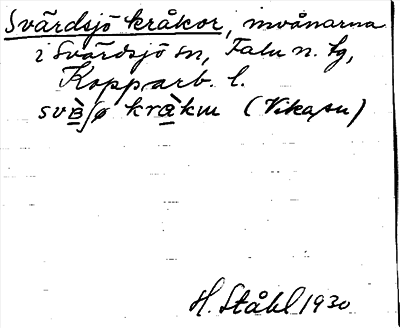 Svärdsjö kråkor, invånarna
i Svärdsjö sn, Falu n. tg,
Kopparb. l.
kråkur (Vikasn)
H. Ståhl 1930